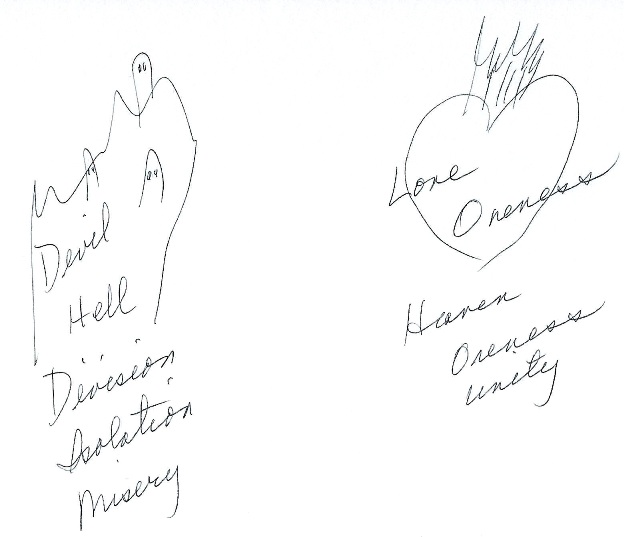 Devil
Hell
Division
Isolation
Misery
Love
Oneness
Heaven
Oneness
unity